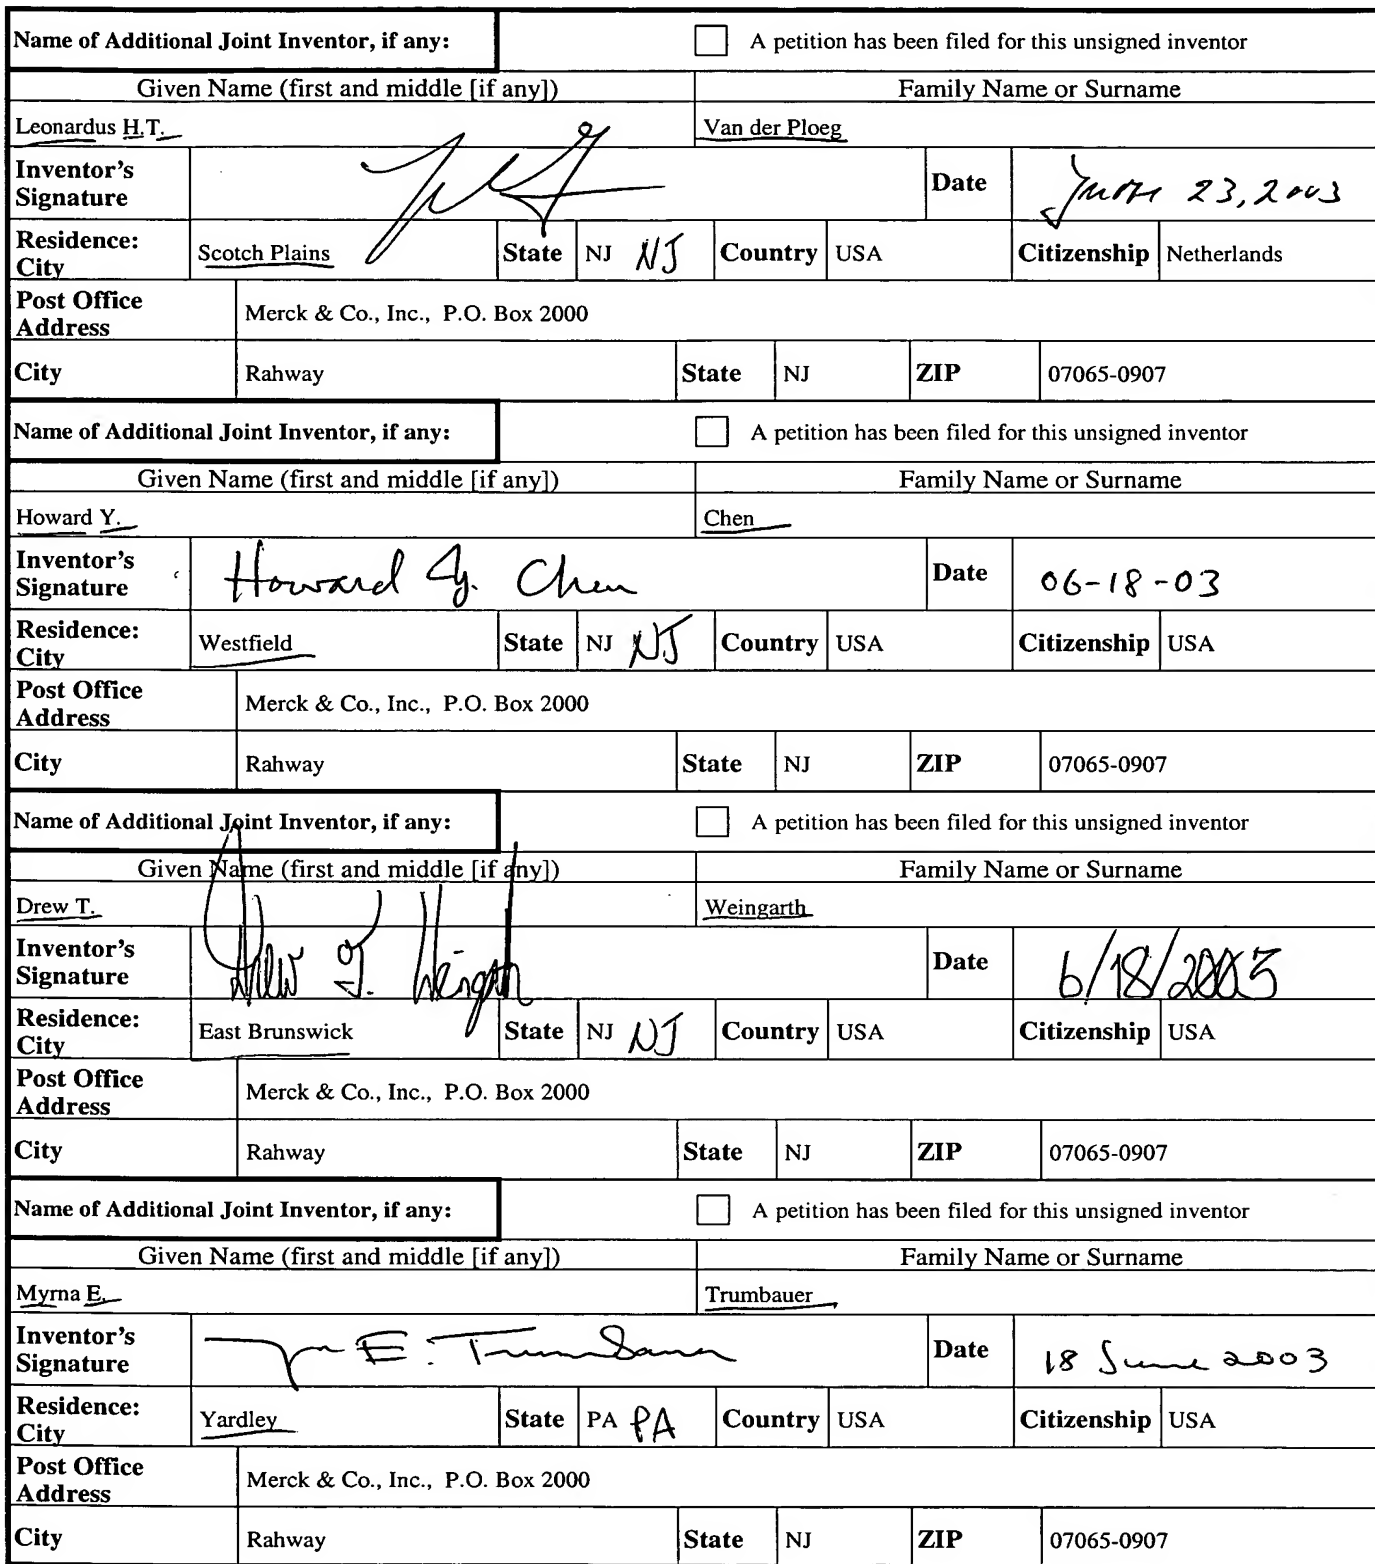 Name of Additional Joint Inventor, if any: A petition has been filed for this unsigned inventor
Given Name (first and middle [if any]) Family Name or Surname
Leonardus H.T. Van der Ploeg
Inventor's Signature Date 23, 2003
Residence: City Scotch Plains State NJ NJ Country USA Citizenship Netherlands
Post Office Address Merck & Co., Inc., P.O. Box 2000
City Rahway State NJ ZIP 07065-0907
Name of Additional Joint Inventor, if any: A petition has been filed for this unsigned inventor
Given Name (first and middle [if any]) Family Name or Surname
Howard Y. Chen
Inventor's Signature Howard Y. Chen Date 06-18-03
Residence: City Westfield State NJ NJ Country USA Citizenship USA
Post Office Address Merck & Co., Inc., P.O. Box 2000
City Rahway State NJ ZIP 07065-0907
Name of Additional Joint Inventor, if any: A petition has been filed for this unsigned inventor
Given Name (first and middle [if any]) Family Name or Surname
Drew T. Weingarth
Inventor's Signature Drew T. Weingarth Date 6/18/2003
Residence: City East Brunswick State NJ NJ Country USA Citizenship USA
Post Office Address Merck & Co., Inc., P.O. Box 2000
City Rahway State NJ ZIP 07065-0907
Name of Additional Joint Inventor, if any: A petition has been filed for this unsigned inventor
Given Name (first and middle [if any]) Family Name or Surname
Myrna E. Trumbauer
Inventor's Signature E. Trumbauer Date 18 June 2003
Residence: City Yardley State PA PA Country USA Citizenship USA
Post Office Address Merck & Co., Inc., P.O. Box 2000
City Rahway State NJ ZIP 07065-0907